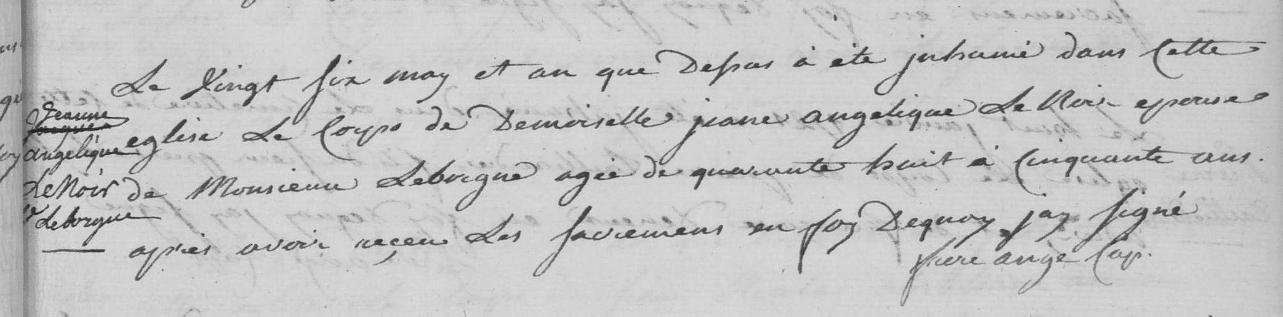 Le Vingt six may et an que Dessus à été inhumé dans Cette
eglise Le Corps de Demoiselle jeane angelique Le Noir epouse
de Monsieur Leborgne agée de quarante huit à Cinquante ans.
après avoir reçeu Les sacremens en foy Dequoy jay signé
frere ange Cap.
Jeanne
angelique
Le Noir
Leborgne